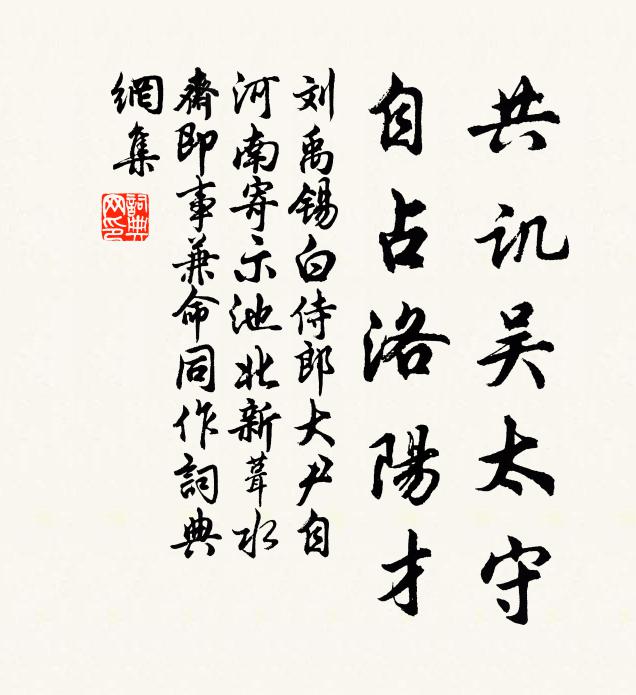 共讥吴太守
自占洛陽才
刘禹锡白侍郎大尹自
河南寄示池北新葺水
齋即事兼命同作詞典
網集
詞典
网印